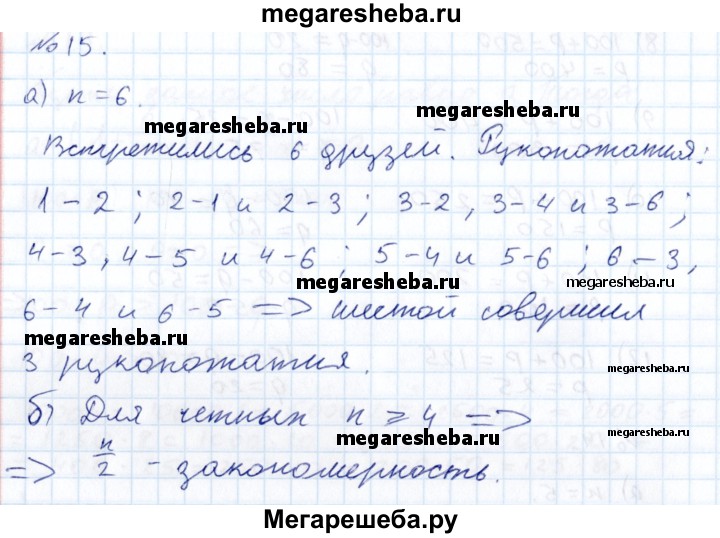 megaresheba.ru
№15.
а) n = 6.
megaresheba.ru
megaresheba.ru
Встретились 6 друзей. Рукопожатия:
megaresheba.ru
1 – 2 ; 2 – 1 и 2 – 3 ; 3 – 2 , 3 – 4 и 3 – 6 ;
4 – 3 , 4 – 5 и 4 – 6 ; 5 – 4 и 5 – 6 ; 6 – 3 ,
megaresheba.ru
megaresheba.ru
6 – 4 и 6 – 5 => шестой совершил
megaresheba.ru
3 рукопожатия.
megaresheba.ru
б) Для четных n ⩾ 4 =>
megaresheba.ru
megaresheba.ru
=> n/2 – закономерность.
Мегарешеба.ру